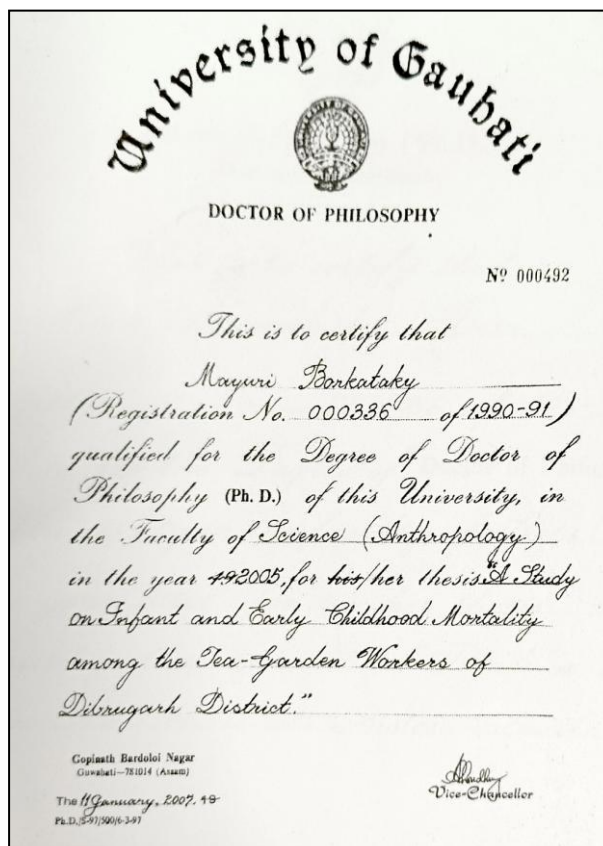 University of Gauhati
DOCTOR OF PHILOSOPHY
Nº 000492
This is to certify that
Mayuri Borkataky
(Registration No. 000336 of 1990-91)
qualified for the Degree of Doctor of
Philosophy (Ph. D.) of this University, in
the Faculty of Science (Anthropology)
in the year 192005, for his/her thesis "A Study
on Infant and Early Childhood Mortality
among the Tea-Garden Workers of
Dibrugarh District."
Gopinath Bardoloi Nagar
Guwahati—781014 (Assam)
Vice-Chancellor
The 11 January, 2007. 19
Ph.D./S-97/500/6-3-97